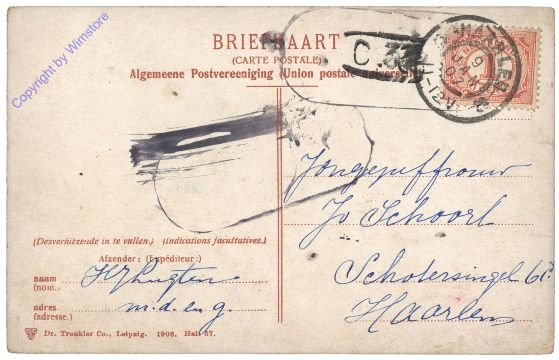 Copyright by Wimstore
BRIEFKAART
(CARTE POSTALE)
Algemeene Postvereeniging (Union postale universelle)
C.33
HAARLEM
Jongejuffrouw
Jo Schoorl
Schotersingel 67.
Haarlem
(Desverkiezende in te vullen.) (Indications facultatives.)
Afzender: (Expéditeur:)
naam
(nom.)
adres.
(adresse.)
m.d.en g.
Dr. Trenkler Co., Leipzig. 1906. Hal. 57.